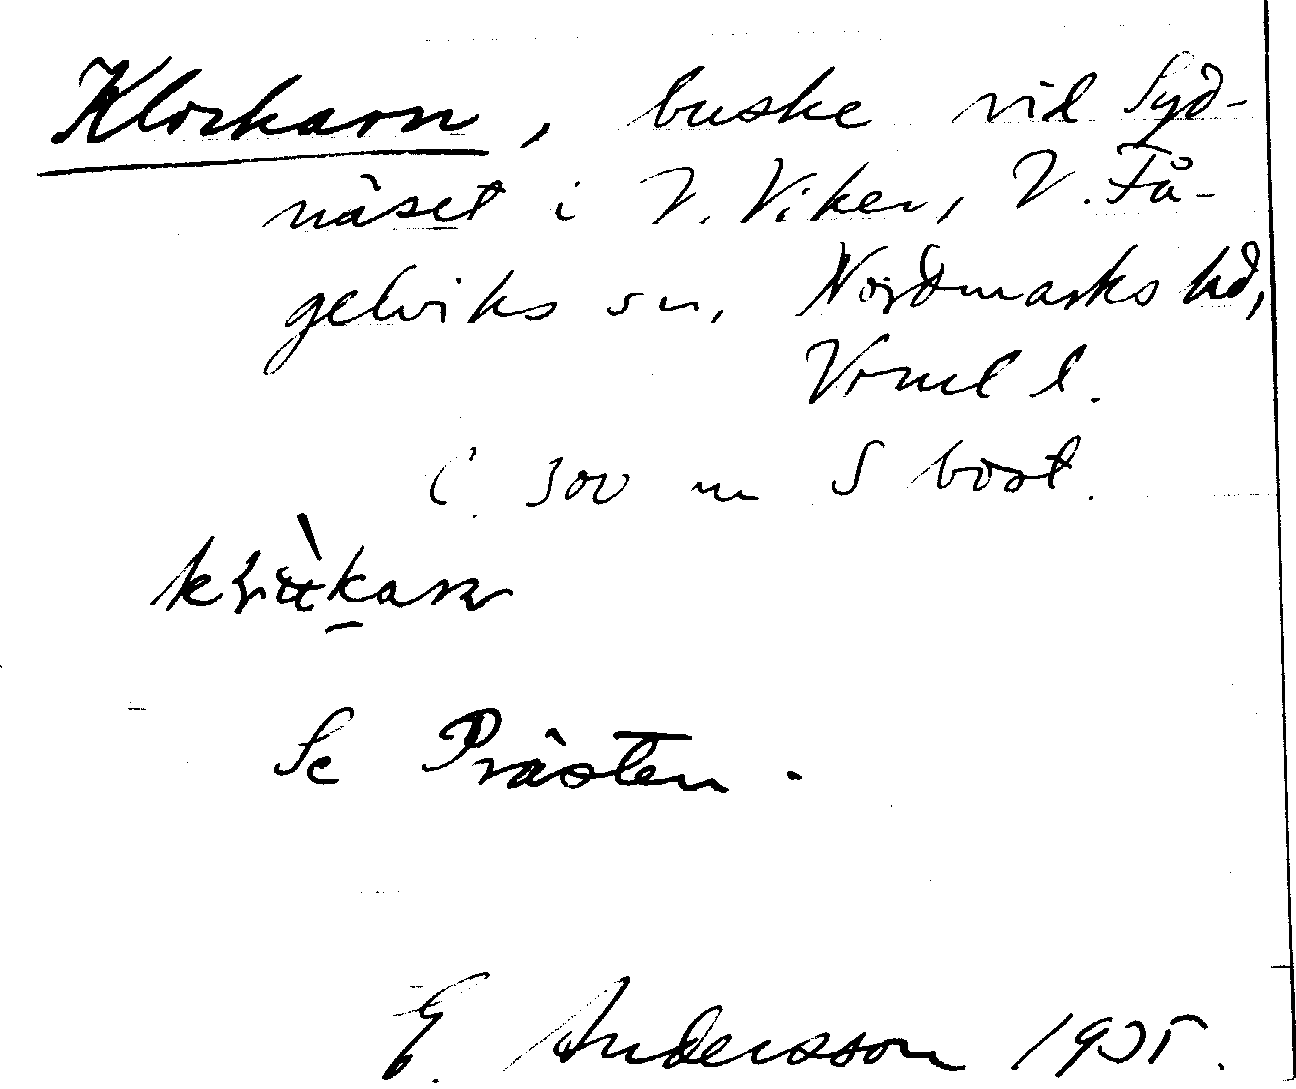 Klockarn, buske vid Syd-
näset i V. Viker, V. Få-
gelviks sn, Nordmarks hd,
Vrml l.
C. 300 m S bost.
Se Prästen.
E. Andersson 1935.